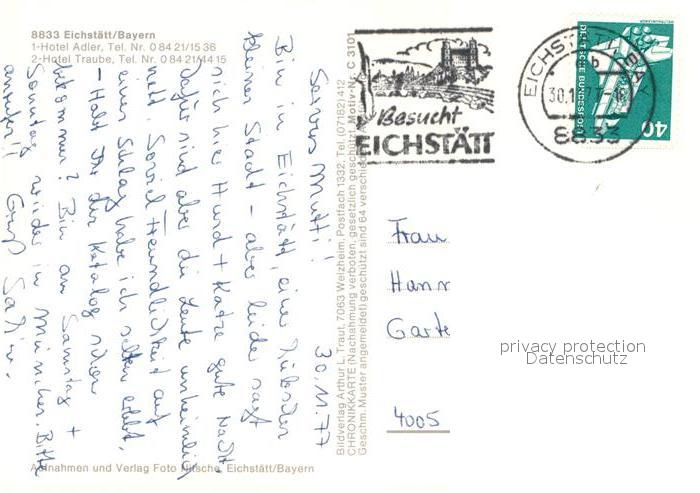 8833 Eichstätt/Bayern
1-Hotel Adler, Tel. Nr. 0 84 21/15 36
2-Hotel Traube, Tel. Nr. 0 84 21/44 15
Servus Mutti! 30.11.77
Bin in Eichstätt, einer hübschen
kleinen Stadt - aber leider sagt
sich hier Hund + Katze gute Nacht.
Dafür sind aber die Leute unheimlich
nett. Soviel Freundlichkeit auf
einen Schlag habe ich selten erlebt.
- Habt Ihr den Katalog schon
bekommen? Bin am Samstag +
Sonntag wieder in München. Bitte
anrufen!! Gruß
Aufnahmen und Verlag Foto Nitsche, Eichstätt/Bayern
Bildverlag Arthur L. Traut, 7063 Welzheim, Postfach 1332, Tel. (07182) 412
CHRONIKKARTE (Nachahmung verboten, gesetzlich geschützt) Motiv-Nr. C 3101
Geschm. Muster angemeldet) geschützt sind 64 verschied
Besucht
EICHSTÄTT
EICHSTÄTT, BAY
b
30.11.77
8833
DEUTSCHE BUNDESPOST
40
Frau
Hann
Garte
4005
privacy protection
Datenschutz